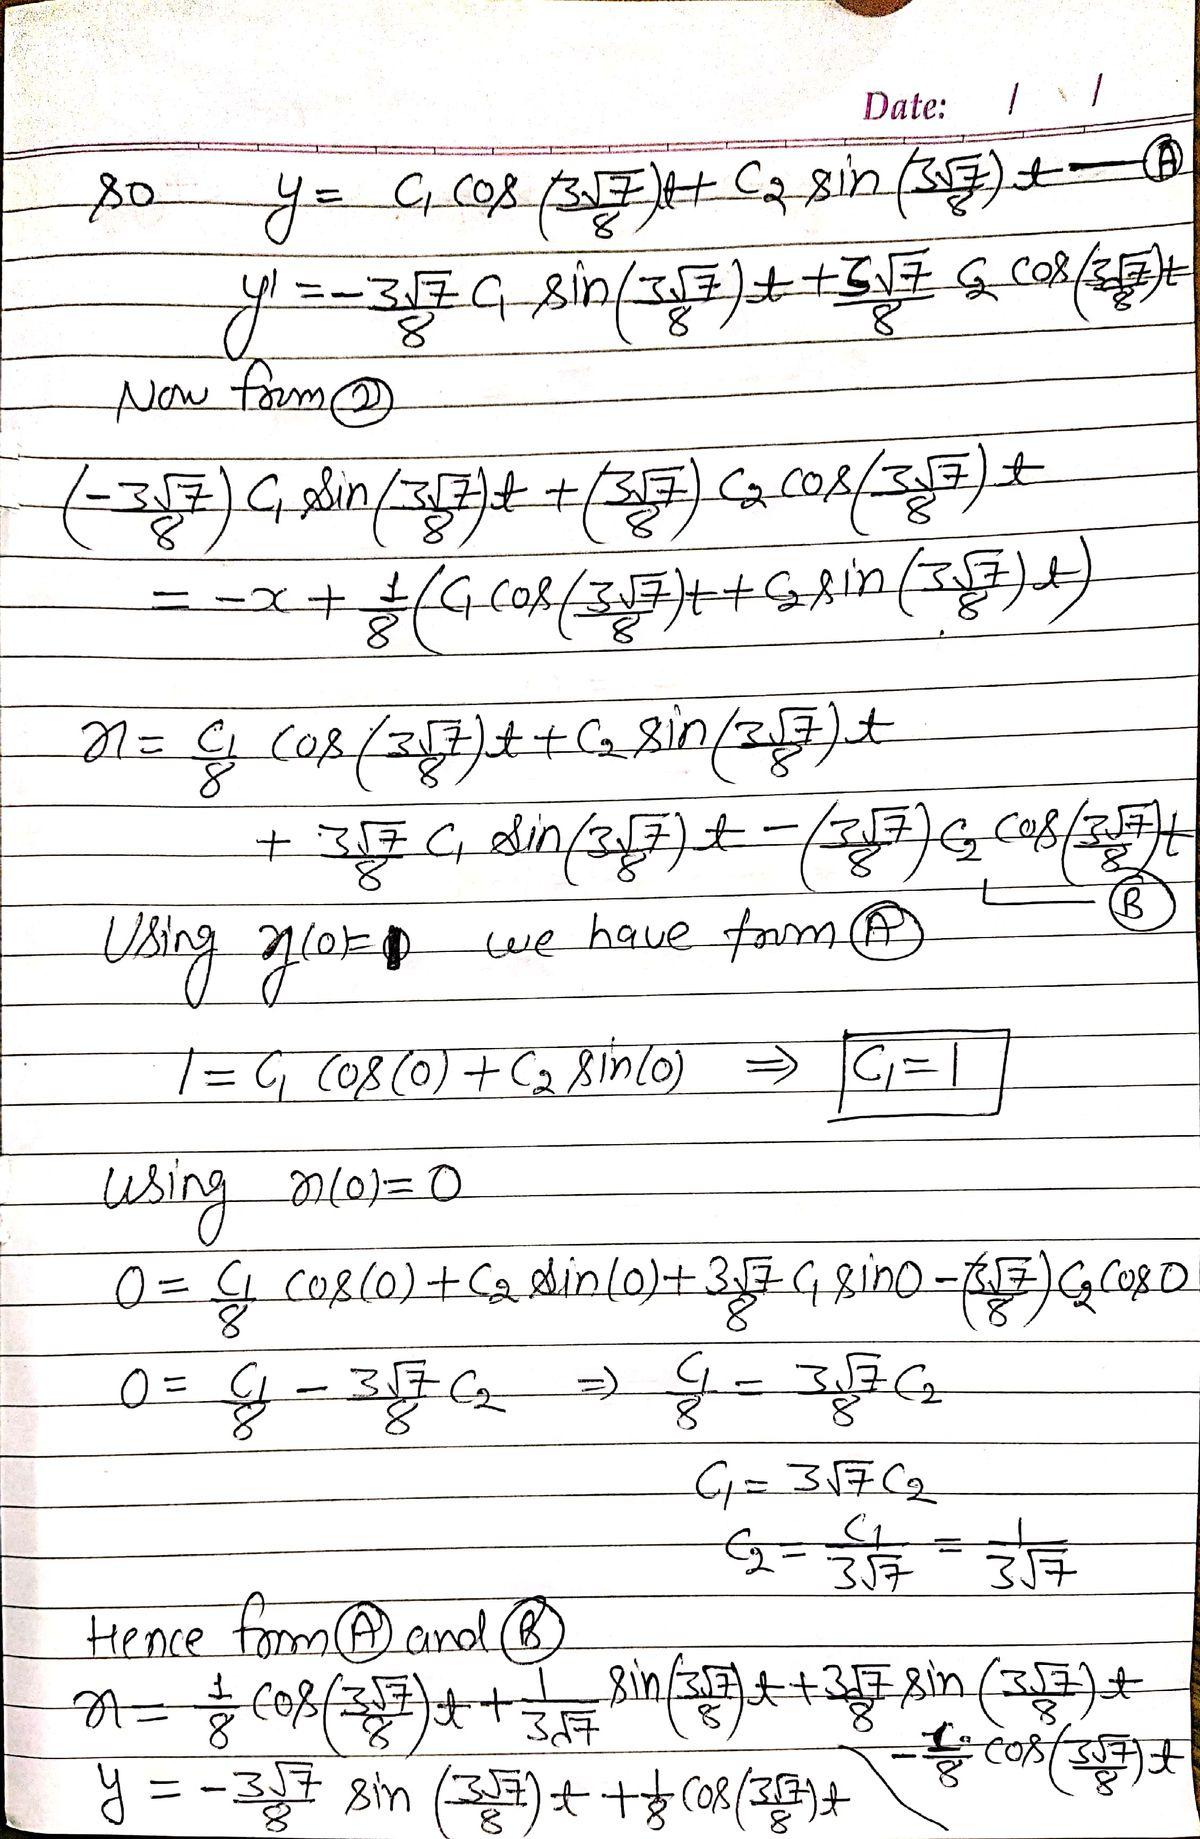 Date: / /
so y = C₁ cos (3√7/8)t + C₂ sin (3√7/8) t — Ⓐ
y' = -3√7/8 C₁ sin (3√7/8) t + 3√7/8 C₂ cos (3√7/8)t
Now form ②
(-3√7/8) C₁ sin (3√7/8)t + (3√7/8) C₂ cos (3√7/8) t
= -x + 1/8 (C₁ cos (3√7/8)t + C₂ sin (3√7/8) t)
x = C₁/8 cos (3√7/8) t + C₂ sin (3√7/8) t
+ 3√7/8 C₁ sin (3√7/8) t - (3√7/8) C₂ cos (3√7/8)t
Ⓑ
Using y(0)=1 we have form Ⓐ
1 = C₁ cos(0) + C₂ sin(0) ⇒ C₁ = 1
Using x(0) = 0
0 = C₁/8 cos(0) + C₂ sin(0) + 3√7/8 C₁ sin0 - (3√7/8) C₂ cos0
0 = C₁/8 - 3√7/8 C₂ ⇒ C₁/8 = 3√7/8 C₂
C₁ = 3√7 C₂
C₂ = C₁/3√7 = 1/3√7
Hence form Ⓐ and Ⓑ
x = 1/8 cos (3√7/8) t + 1/3√7 sin (3√7/8) t + 3√7/8 sin (3√7/8) t
- 1/8 cos (3√7/8) t
y = -3√7/8 sin (3√7/8) t + 1/8 cos (3√7/8) t